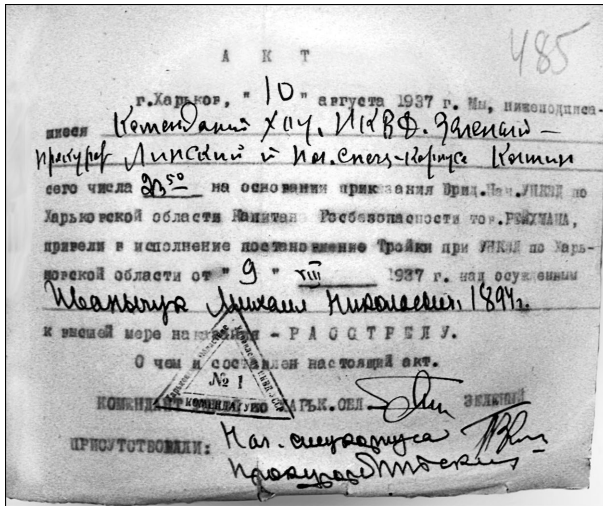 485
А К Т
г.Харьков, "10" августа 1937 г. Мы, нижеподписа-
шиеся Комендант ХОУ. НКВД. Зеленый –
прокурор Линский и Нач.спец-корпуса
сего числа 23 50 на основании приказания Врид.Нач.УНКВД по
Харьковской области Капитан Госбезопасности тов.РЕЙХМАНА,
привели в исполнение постановление Тройки при УНКВД по Харь-
ковской области от "9" VIII 1937 г. над осужденным
Иванычук Михаил Николаевич. 1894г.
к высшей мере наказания - Р А С С Т Р Е Л У.
О чем и составлен настоящий акт.
№ 1
КОМЕНДАТУРЮ
КОМЕНДАНТ ХАРЬК.ОБЛ. ЗЕЛЕНЫЙ
ПРИСУТСТВОВАЛИ: Нач. спецкорпуса
Прокурор